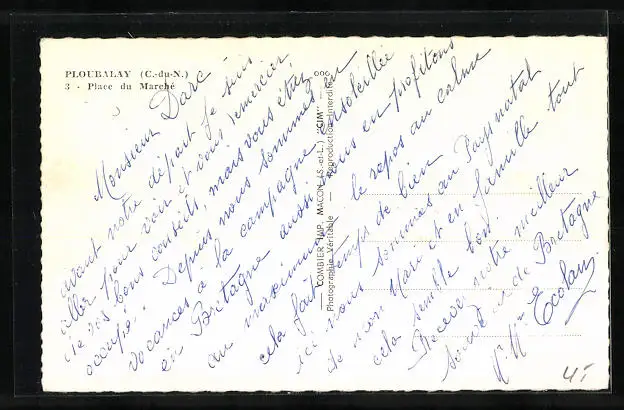 PLOUBALAY (C.-du-N.)
3 - Place du Marché
Monsieur Darc
avant notre départ je suis
aller pour voir et vous remercier
de vos bons conseils, mais vous étiez
occupé. Depuis nous sommes en
vacances à la campagne ensoleillée
en Bretagne aussi nous en profitons
au maximum. le repos au calme
cela fait temps de bien
ici nous sommes au Pays natal
de mon Mari et en famille tout
cela semble bon.
Recevez notre meilleur
souvenir de Bretagne
Mr Mme Ecolan
COMBIER IMP. MACON (S.-et-L.) "CIM"
Photographie Véritable — Reproduction Interdite
006
45